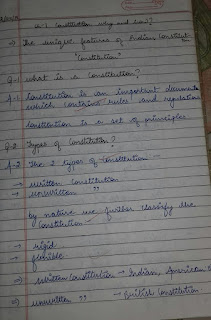 U-1 Constitution why and how?
→ The unique features of Indian Constitution
"Constitution"
Q-1 What is a Constitution?
A-1 Constitution is an important document
which contains rules and regulations
Constitution is a set of principles
Q-2 Types of Constitution?
A-2 The 2 types of Constitution -
→ written Constitution
→ unwritten "
by nature we further classify the
Constitution -
→ rigid
→ flexible
⇒ written Constitution → Indian, American
⇒ unwritten " → British Constitution